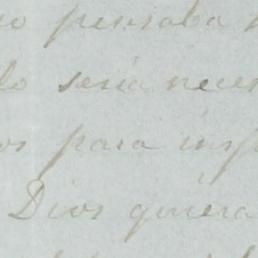 pensaba
lo seria neces
os para ins
Dios quiera